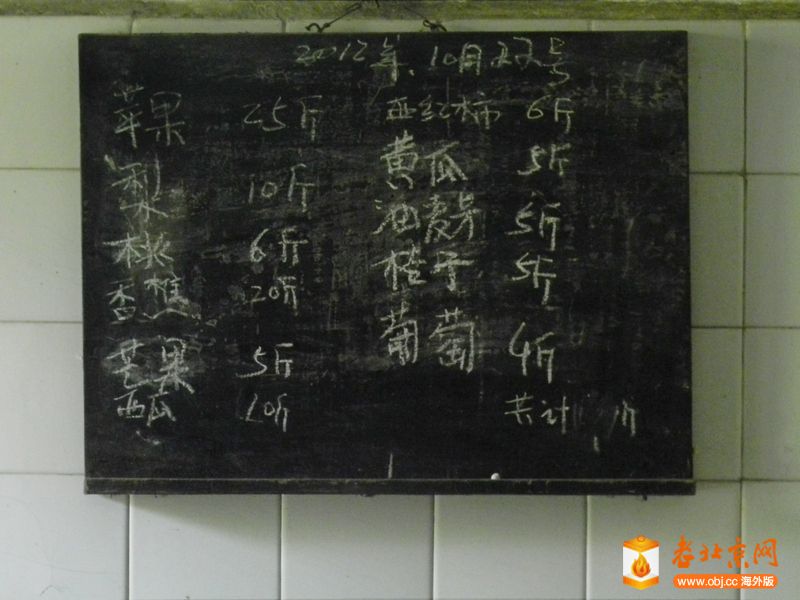 2012年、10月22号
苹果 25斤
梨 10斤
桃 6斤
香蕉 20斤
芒果 5斤
西瓜 10斤
西红柿 6斤
黄瓜 5斤
油麦 5斤
桔子 5斤
葡萄 4斤
共计 斤
老北京网
www.obj.cc 海外版